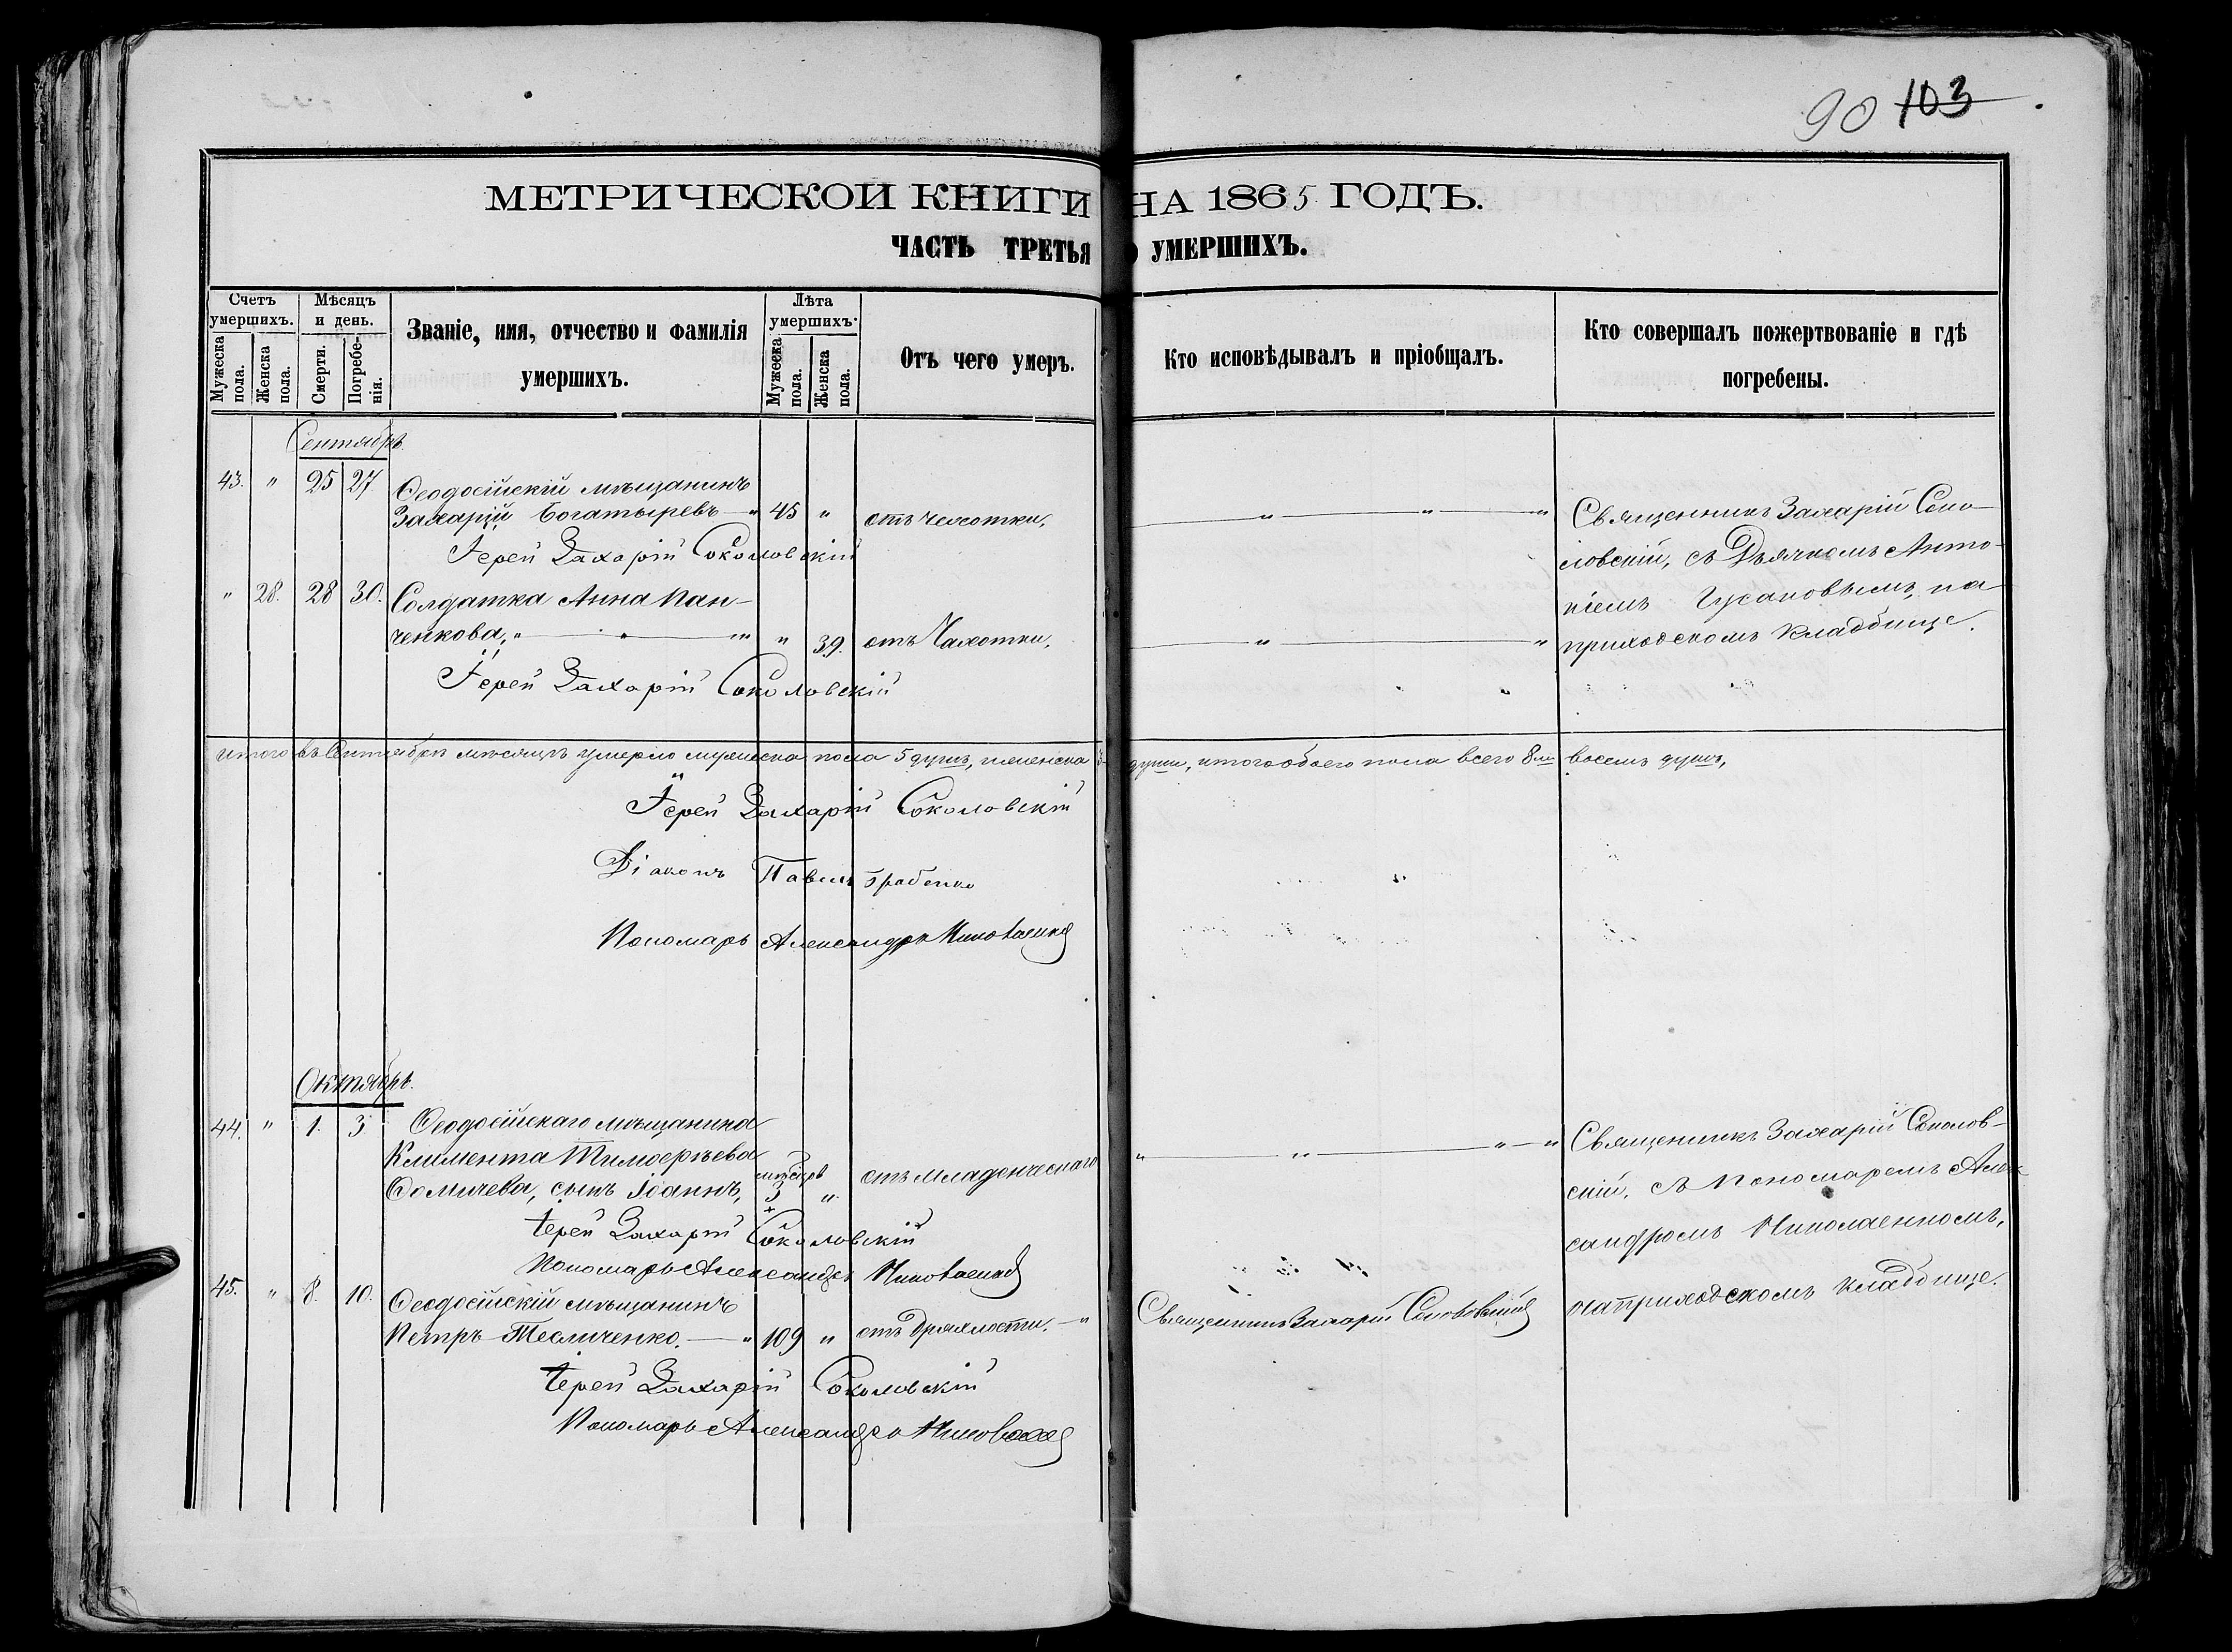 90 103
МЕТРИЧЕСКОЙ КНИГИ НА 1865 ГОДЪ.
ЧАСТЬ ТРЕТЬЯ О УМЕРШИХЪ.
Счетъ умершихъ.
Мужеска пола.
Женска пола.
Мѣсяцъ и день.
Смерти.
Погребенія.
Званіе, имя, отчество и фамилія
умершихъ.
Лѣта умершихъ.
Мужеска пола.
Женска пола.
Отъ чего умеръ.
Кто исповѣдывалъ и пріобщалъ.
Кто совершалъ пожертвованіе и гдѣ
погребены.
Сентябрь.
43. " 25 27. Ѳеодосійскій мѣщанинъ
Захарій Богатыревъ — " 45 " отъ чахотки.
Іерей Захарій Соколовскій
" 28. 28 30. Солдатка Анна Пан-
ченкова, " — " — " " 39. отъ Чахотки.
Іерей Захарій Соколовскій
Священникъ Захарій Соко-
ловскій, съ Дьячкомъ Анто-
ніемъ Гусаковымъ, на
приходскомъ кладбище.
Итого въ Сентябрѣ мѣсяцѣ умерло мужеска пола 5 душъ, женска 3 души, итого обоего пола всего 8мь восемь душъ,
Іерей Захарій Соколовскій
Діаконъ Павелъ
Пономарь Александръ
Октябрь.
44. " 1. 3 Ѳеодосійскаго мѣщанина
Климента Тимоѳеѣва
Ѳомичева, сынъ Іоаннъ, мѣсяцовъ 3 " отъ младенческаго
Іерей Захарій Соколовскій
Пономарь Александръ
45. " 8. 10. Ѳеодосійскій мѣщанинъ
Петръ Тесличенко. — " 109 " отъ дряхлости. — "
Священникъ Захарій Соколовскій
Іерей Захарій Соколовскій
Пономарь Александръ
Священникъ Захарій Соколов-
скій, съ Пономаремъ Алек-
сандромъ
на приходскомъ кладбище.